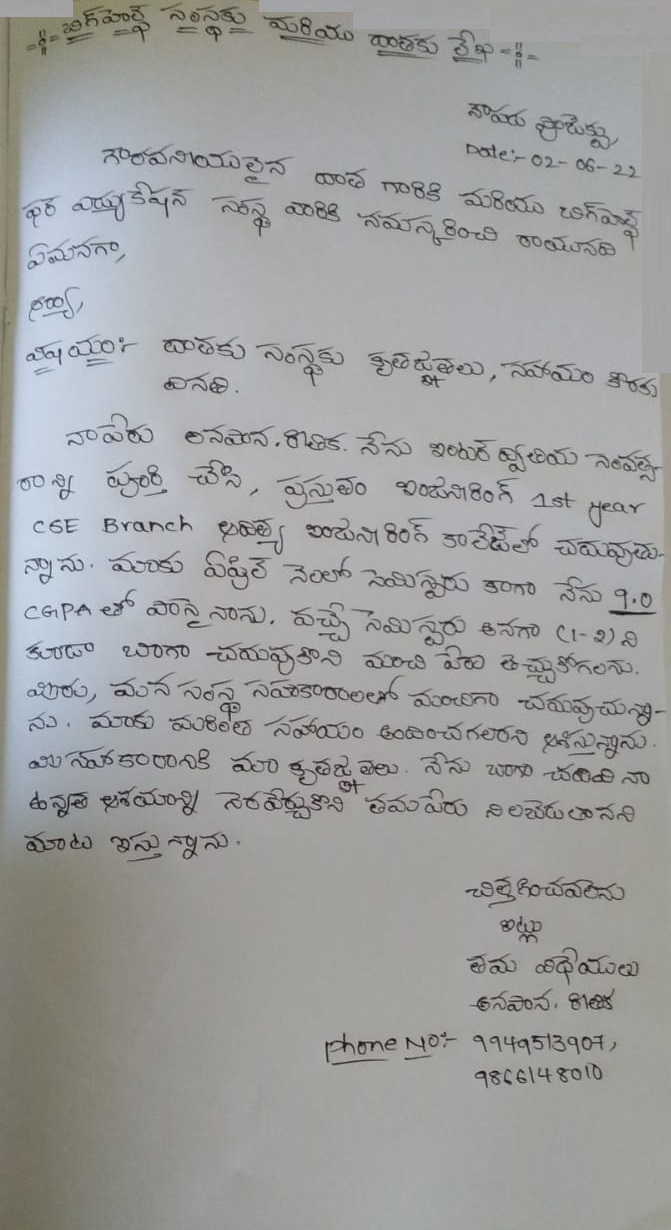 -:- బిగ్‌హెల్ప్ సంస్థకు మరియు దాతకు లేఖ -:-
కాపరు ప్రాజెక్టు,
Date:- 02-06-22
గౌరవనీయులైన దాత గారికి మరియు బిగ్‌హెల్ప్
ఫర్ ఎడ్యుకేషన్ సంస్థ వారికి నమస్కరించి రాయునది
ఏమనగా,
ఆర్యా,
విషయం:- దాతకు సంస్థకు కృతజ్ఞతలు, సహాయం కొరకు
వినతి.
నా పేరు అనపాన. కీర్తిక. నేను ఇంటర్ ద్వితీయ సంవత్స-
రాన్ని పూర్తి చేసి, ప్రస్తుతం ఇంజనీరింగ్ 1st year
CSE Branch ఆదిత్య ఇంజనీరింగ్ కాలేజ్‌లో చదువుతు-
న్నాను. మాకు ఏప్రిల్ నెలలో సెమిస్టరు కాగా నేను 9.0
CGPA తో పాసైనాను. వచ్చే సెమిస్టరు అనగా (1-2) ని
కూడా బాగా చదువుకొని మంచి పేరు తెచ్చుకోగలను.
మీరు, మన సంస్థ సహకారాలతో మంచిగా చదువుచున్నా-
ను. మాకు మరింత సహాయం అందించగలరని ఆశిస్తున్నాను.
మీ సహకారానికి మా కృతజ్ఞతలు. నేను బాగా చదివి నా
ఉన్నత ఆశయాన్ని నెరవేర్చుకొని తమ పేరు నిలబెడుతానని
మాట ఇస్తున్నాను.
చిత్తగించవలెను
ఇట్లు
తమ విధేయులు
అనపాన. కీర్తిక
Phone No:- 9949513907,
9866148010